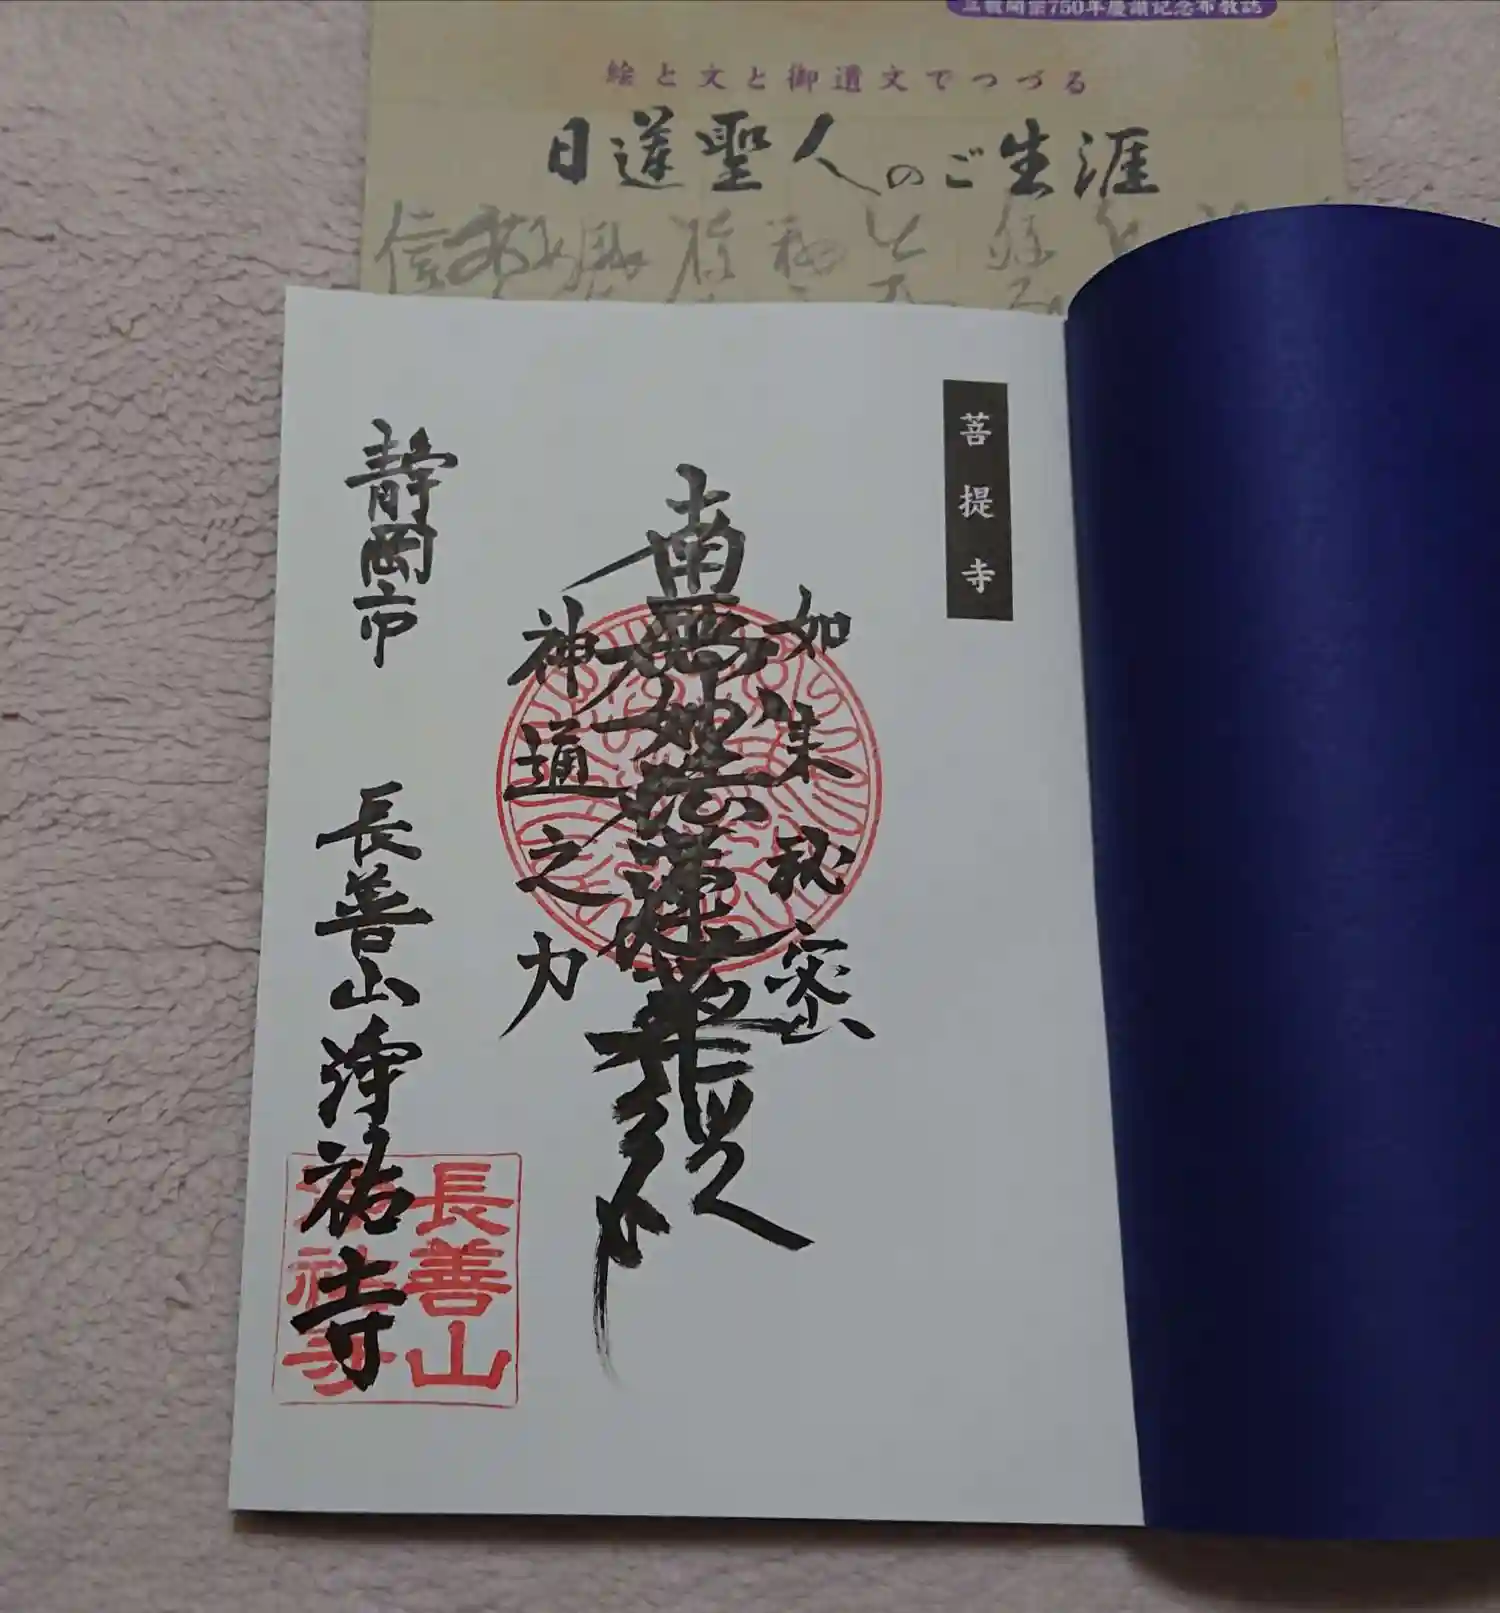 立教開宗750年慶讃記念布教誌
絵と文と御遺文でつづる
日蓮聖人のご生涯
菩提寺
如来秘密
南無妙法蓮華経
神通之力
静岡市
長善山浄祐寺
長善山